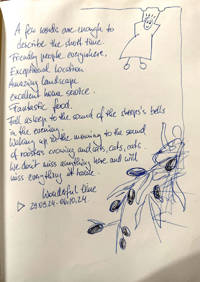 A few words are enough to
describe the short time.
Friendly people everywhere.
Exceptional location
Amazing landscape
excelent home service.
Fantastic food.
Fall asleep to the sound of the sheeps's bells
in the evening.
Waking up in the morning to the sound
of roosters crowing and cats, cats, cats.
We don't miss anything here and will
miss everything at home.
Wonderful time
29.09.24-06.10.24.